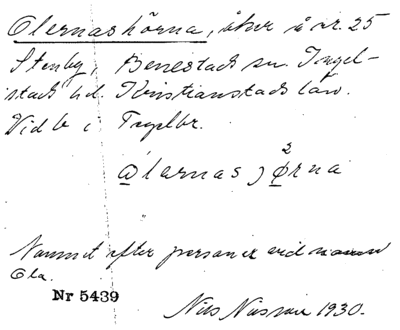 Olernas hörna, åker å nr. 25
Stenby, Benestads sn. Ingel-
stads hd. Kristianstads län.
Vid b i
lernas
Namnet efter personer vid namn
Ola.
Nr 5439
Nils 1930.